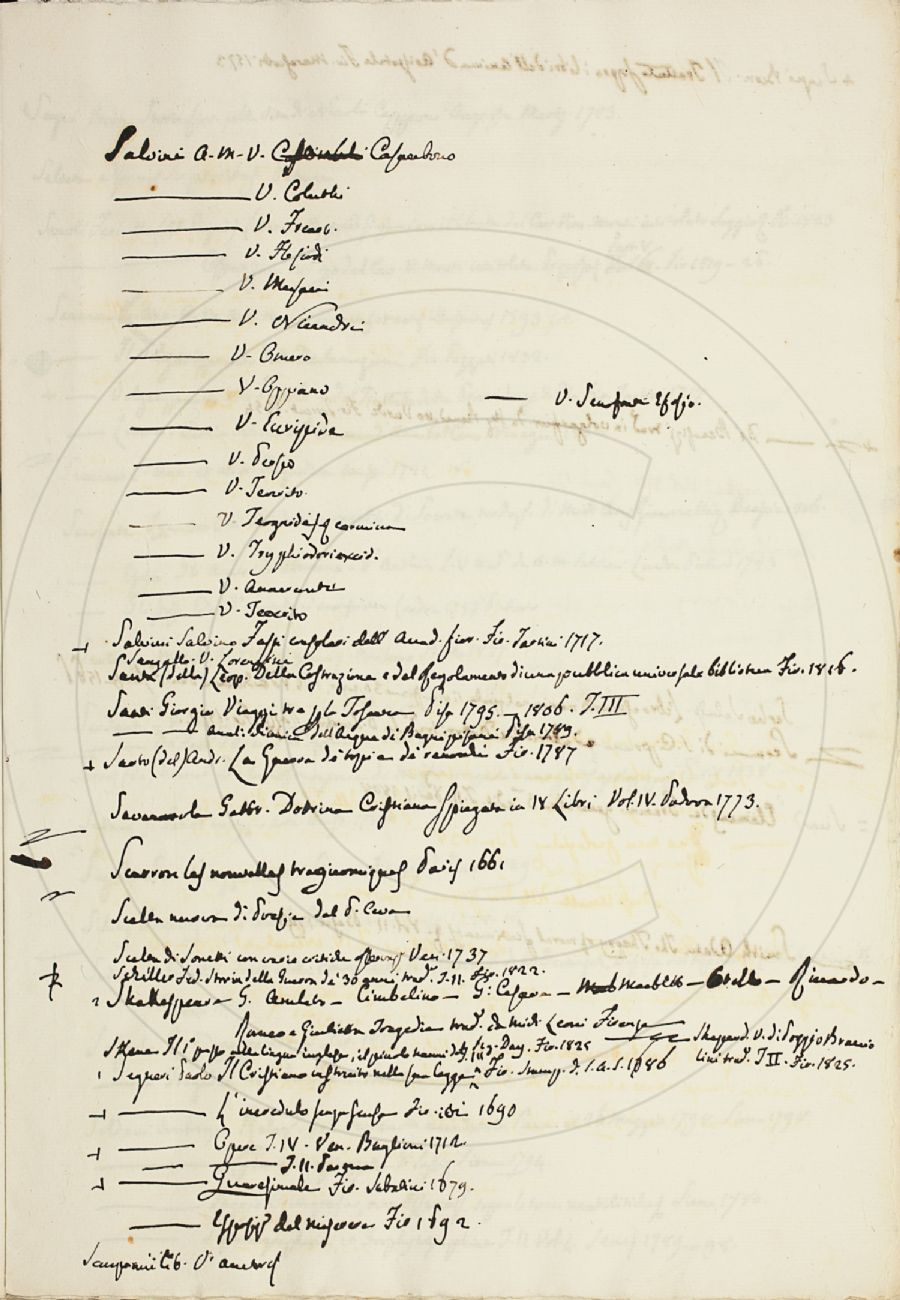 Salvini A. M. V. Casaubono
V. Coluthi
V. Hesiodi
V. Museei
V. Nicandri
V. Omero
V. Oppiano
V. Senofonte Efesio.
V. Euripide
V. Teocrito.
V. carmina
V. Tryphiodori excid.
V. Anacreonte
V. Teocrito
Salvini Salvino Fasti consolari dell' Accad. fior. Fir. Tartini 1717.
Sangallo. V. Lorenzini
Santa (della) Leop. Della Costruzione e del Regolamento di una pubblica universale biblioteca Fir. 1816.
Santi Giorgio Viaggi tre per la Toscana Pisa 1795. — 1806. T. III
Analisi chimica dell'Acque di Bagni pisani Pisa 1789.
Sarto (del) Andr. La Guerra de' topi e de' ranocchi Fir. 1787
Savonarola Dottrina Cristiana Spiegata in 18 Libri Vol. IV. Padova 1773.
Scarron les nouvelles tragicomiques Paris 1661
Scelta nuova di Poesie del P. Ceva
Scelta di Sonetti con varie critiche osservaz. Ven. 1737
Schiller Fed. Storia della Guerra de' 30 anni trad. T. II. Fir. 1822.
Shakespeare G. Amleto — Cimbelino — G. Cesare — Macbeth — Otello — Riccardo —
Romeo e Giulietta Tragedie trad. da Mich. Leoni Firenze
Shepperd. V. di Poggio Bracciolini trad. T. II. Fir. 1825.
Skene Il 1° passo alla lingua inglese, Fir. 1825
Segneri Paolo Il Cristiano instruito nella sua Legge Fir. Stamp. d. S. A. S. 1686
L'incredulo senza scusa Fir. ivi 1690
Opere T. IV. Ven. Baglioni 1712.
T. II. Parma
Quaresimale Fir. Sabatini 1679.
Esposiz. del miserere Fir. 1692.